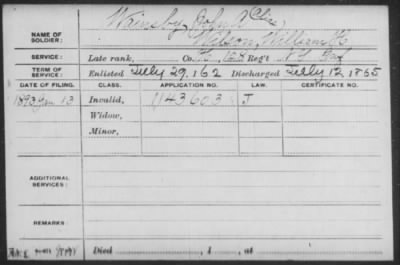 Wainsby, John A (Alias)
NAME OF SOLDIER: Wilson, William H.
SERVICE: Late rank, Co. Reg't N.Y. Inf
TERM OF SERVICE: Enlisted July 29, 1 62 Discharged July 12, 1865
DATE OF FILING. CLASS. APPLICATION NO. LAW. CERTIFICATE NO.
1893 Jan. 13 Invalid, 1143603 J
Widow,
Minor,
ADDITIONAL SERVICES:
REMARKS:
Died , 1 , at